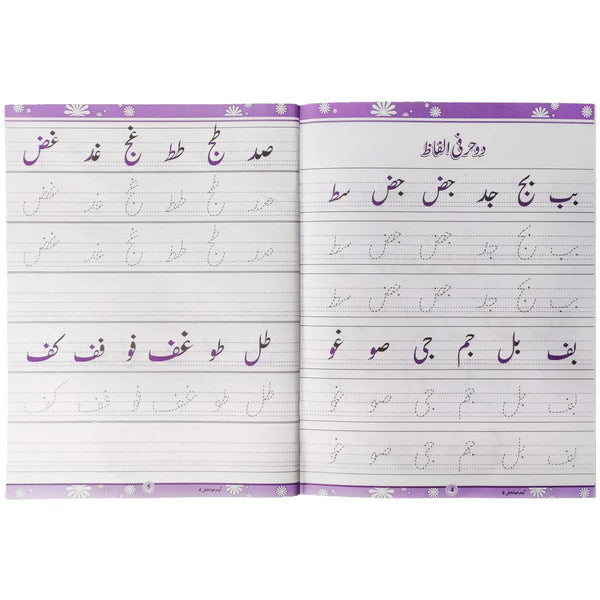 دو حرفی الفاظ
بب بج جد جض جض سط
بب بج جد جض جض سط
بب بج جد جض جض سط
بف بل جم جی صو غو
بف بل جم جی صو غو
بف بل جم جی صو غو
4
صد طج طط غج غد غض
صد طج طط غج غد غض
صد طج طط غج غد غض
طل طو غف فو فف کف
طل طو غف فو فف کف
5